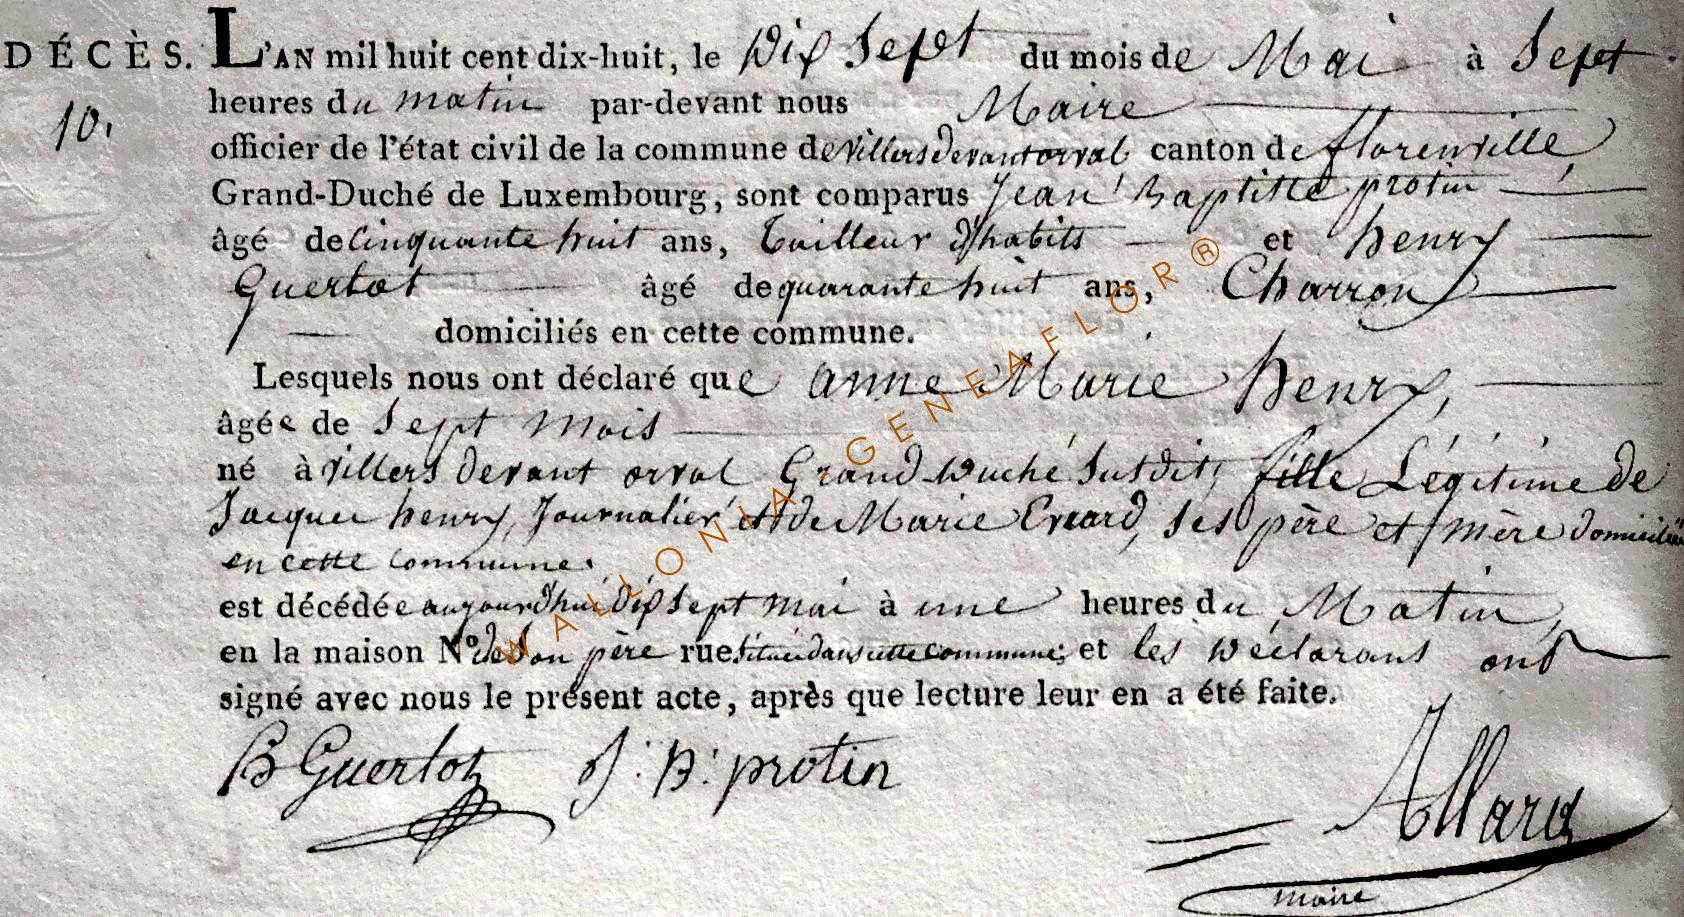 DÉCÈS. L'AN mil huit cent dix-huit, le Dix Sept du mois de Mai à Sept
10. heures du matin par-devant nous Maire
officier de l'état civil de la commune de villers devant orval canton de florenville,
Grand-Duché de Luxembourg, sont comparus Jean Baptiste protin
âgé de Cinquante huit ans, Tailleur d'habits et henry
Guerlot âgé de quarante huit ans, Charron
domiciliés en cette commune.
Lesquels nous ont déclaré que anne Marie henry,
âgée de Sept mois
né à villers devant orval Grand Duché Susdit, fille Légitime de
Jacque henry, Journalier et de Marie Evrard, ses père et mère domiciliés
en cette commune.
est décédée aujourd'hui dix Sept mai à une heures du Matin,
en la maison N° de son père rue située dans cette commune; et les Déclarans ont
signé avec nous le présent acte, après que lecture leur en a été faite.
Guerlot J. B. protin Allard
maire
WALLONIA GENEAFLOR®